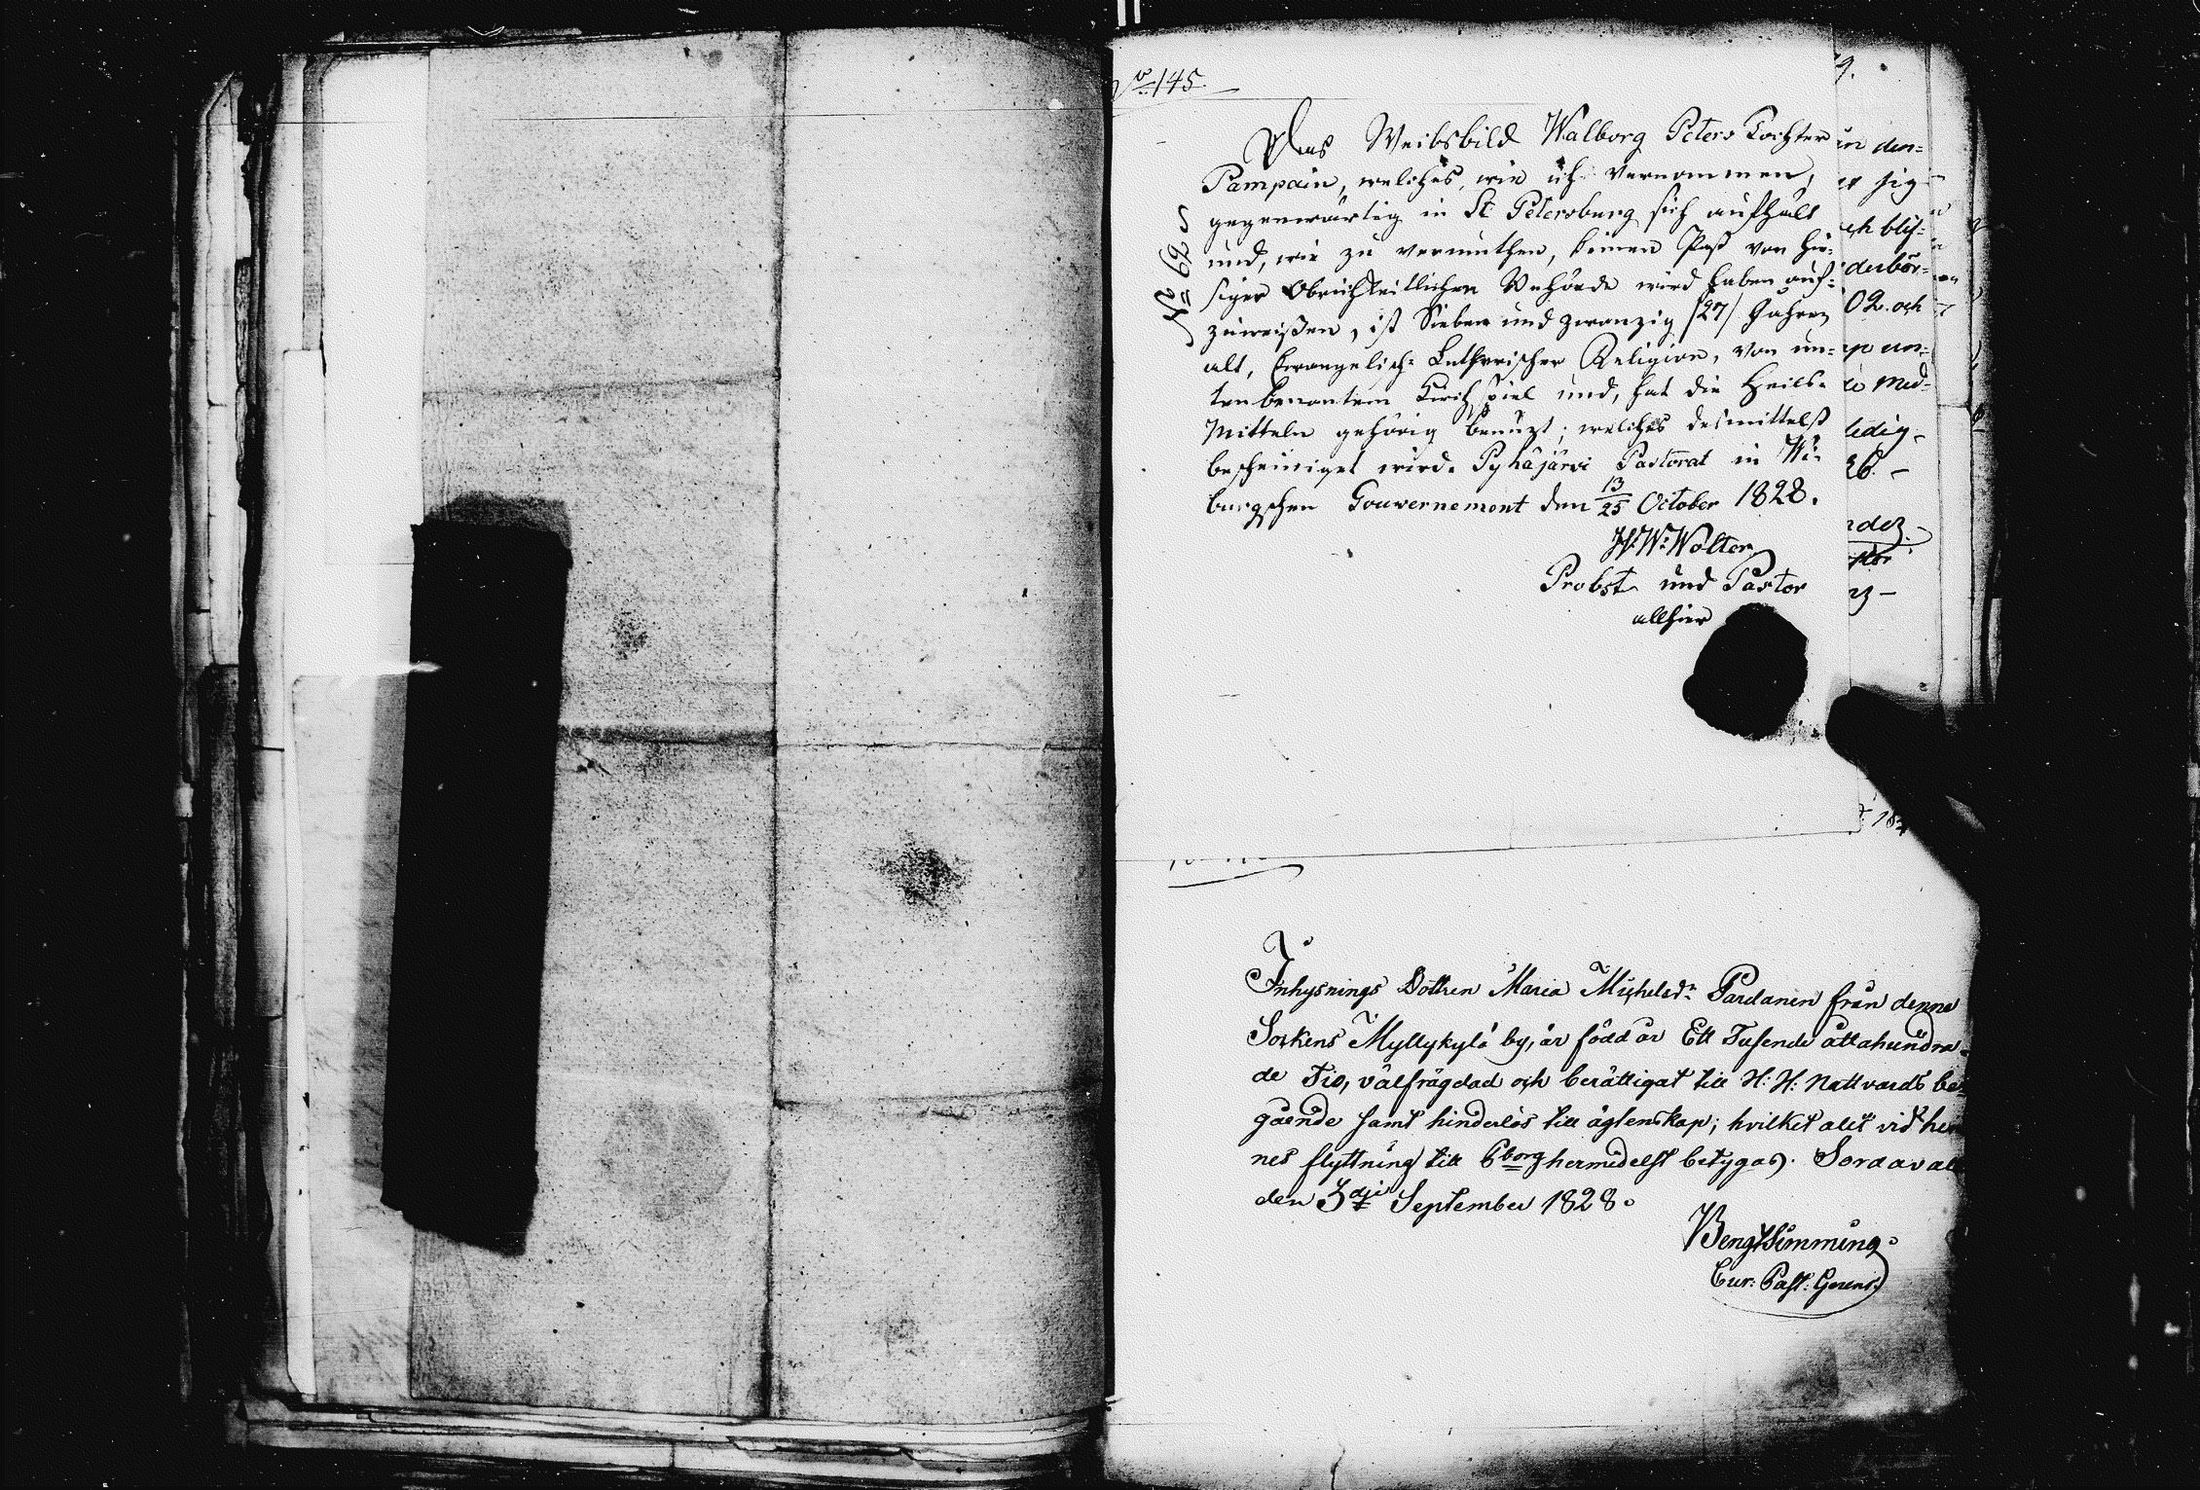 No 145.
No 62
Das Weibsbild Walborg Peters Tochter
Pampain, welches, wie ich vernommen,
gegenwärtig in St Petersburg sich aufhält
und, wie zu vermuthen, keinen Paß von hie=
siger Obrichkeitlichen Behörde wird haben auf=
zuweißen, ist Sieben und zwanzig /27/ Jahren
alt, Evangelisch= Lutherischer Religion, von un=
tenbenantem Kirchspiel und, hat die Heils=
Mitteln gehörig benuzt; welches desmittelst
bescheiniget wird. Pyhäjärvi Pastorat in Wi=
burgschen Gouvernement den 13/25 October 1828.
Wolter
Probst und Pastor
allhier
9.
den=
sig
02. och
med=
ledig
Inhysnings Dottren Maria Michelsdr Pardanen från denna
Sockens Myllykylä by, är född år Ett Tusende åttahundra=
de Tio, välfrägdad och berättigat till H: H: Nattvards be=
gående samt hinderlös till ägtenskap; hvilket alt vid hen
nes flyttning till Pborg hermedelst betygas. Sordavala
den 3dje September 1828.
Bengt Simming.
Cur: Past: Gerens: